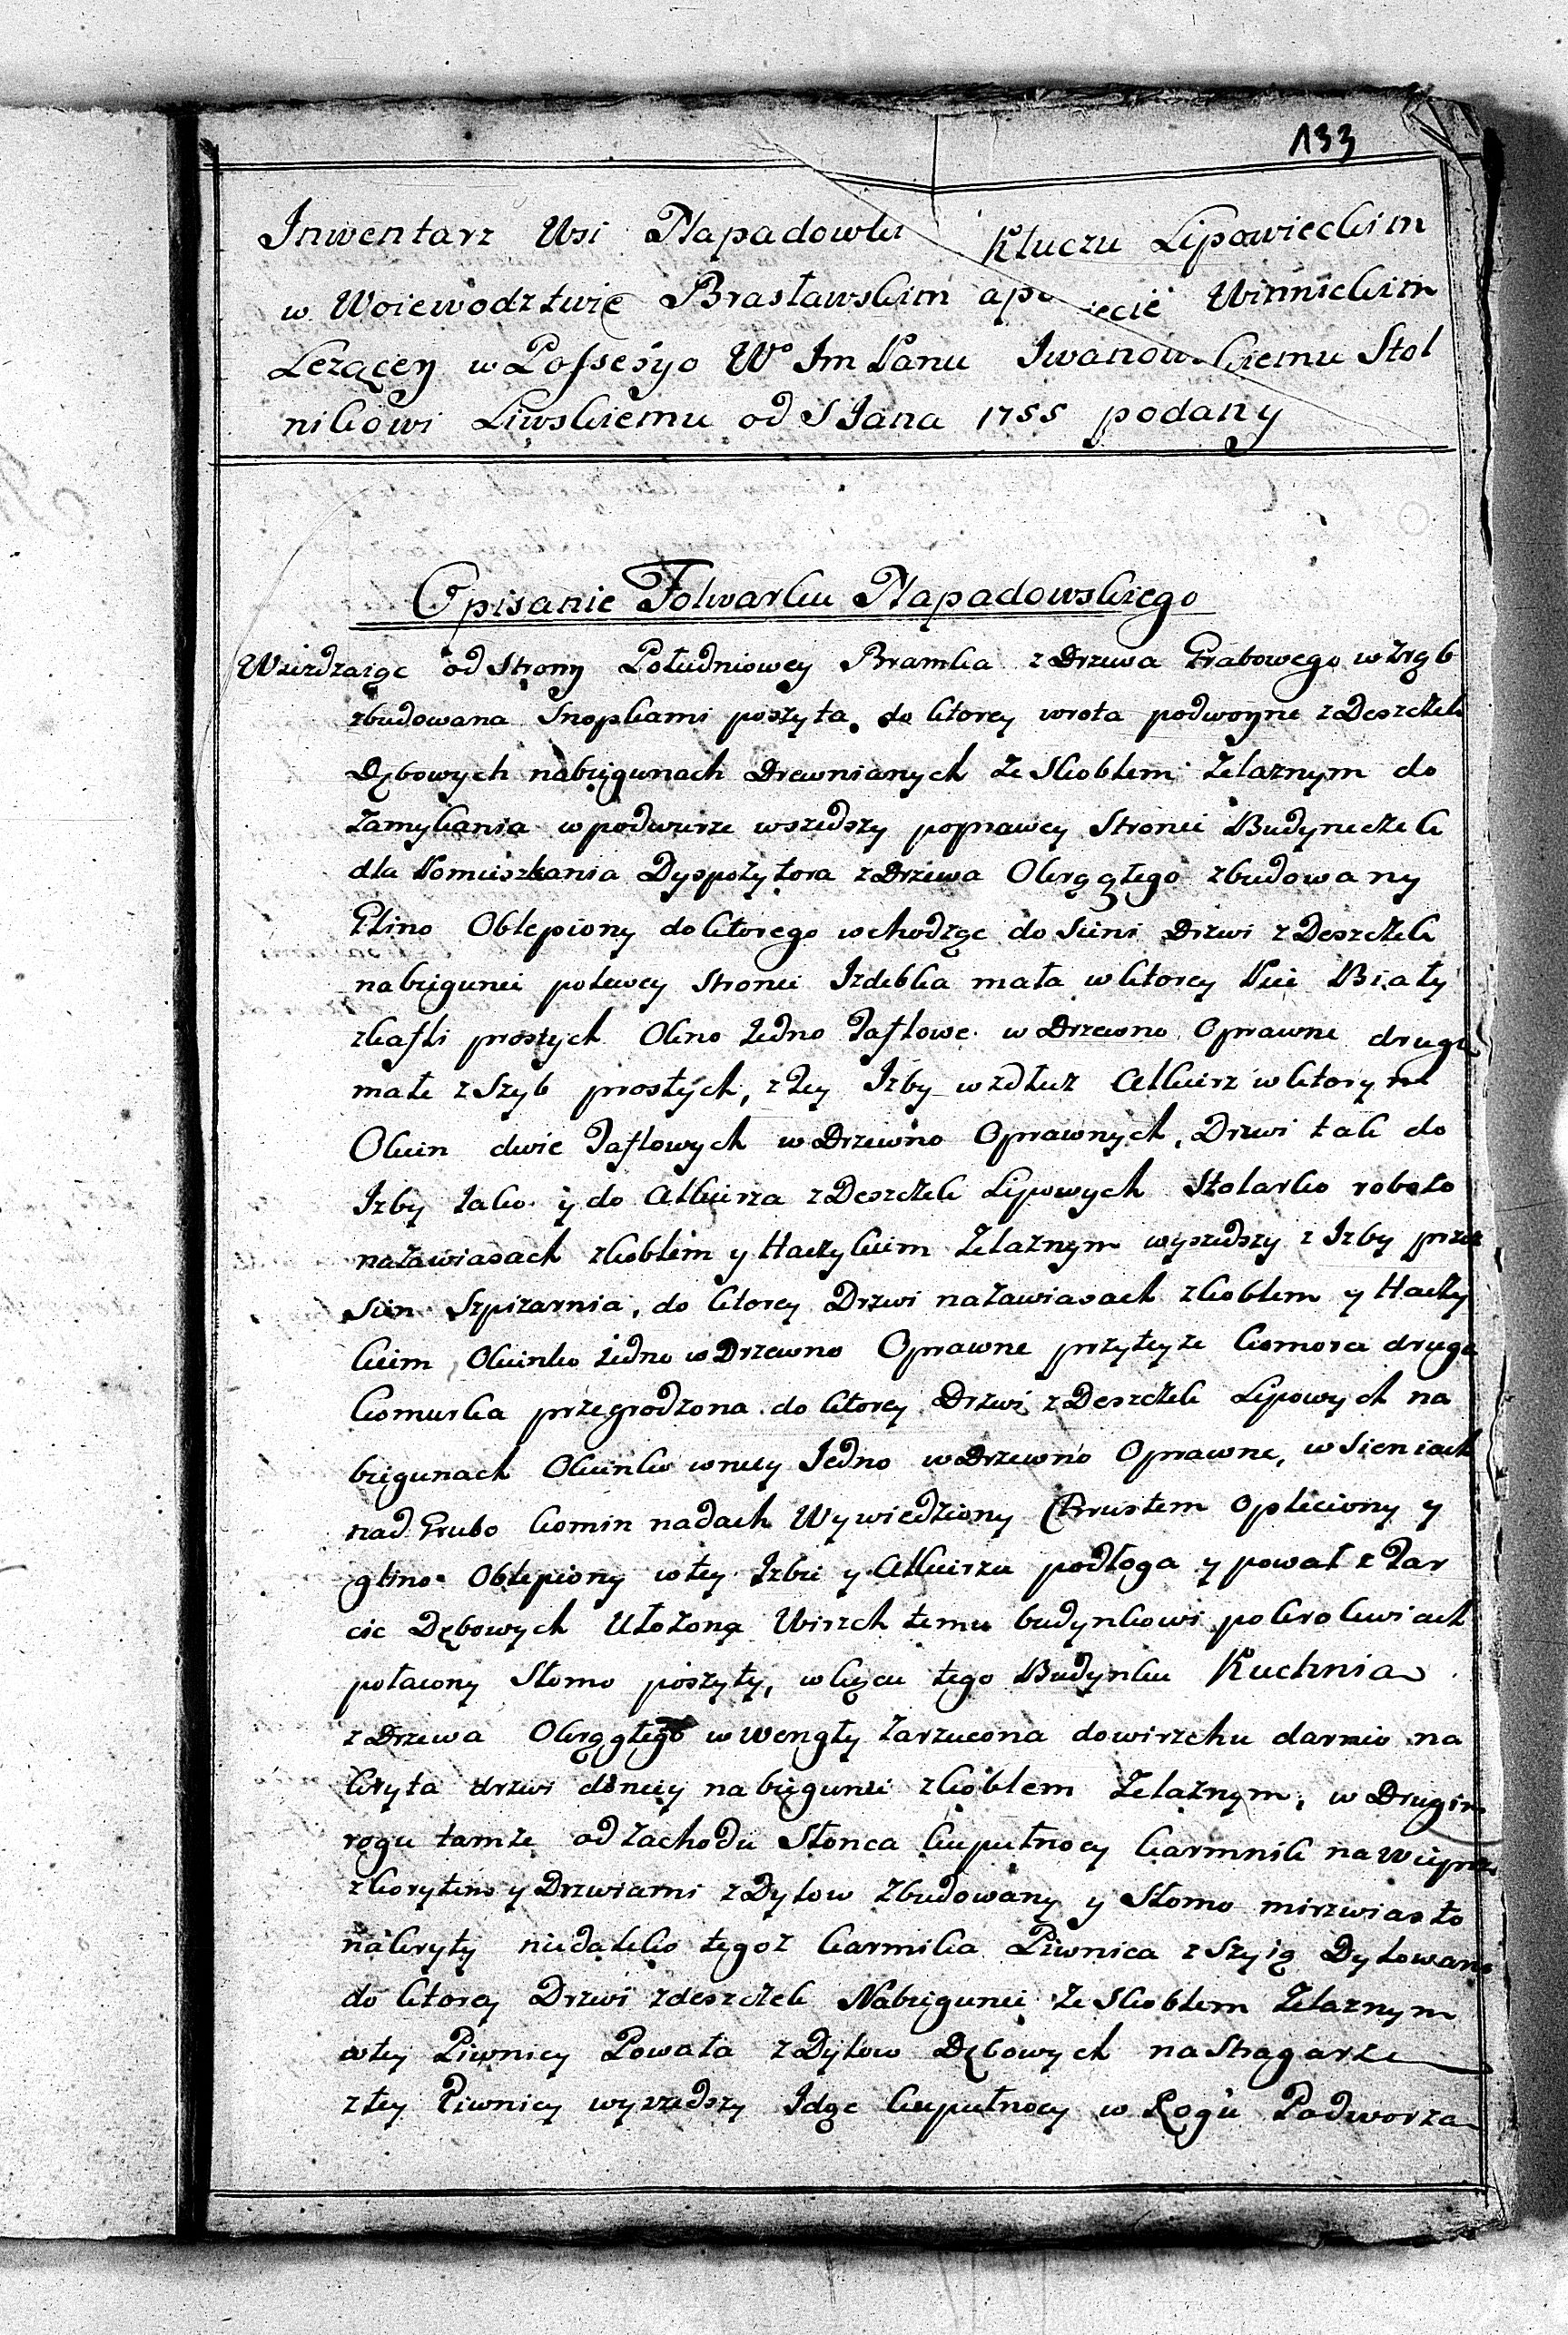 133
Inwentarz Wsi Napadowki Kluczu Lipowieckim
w Woiewodztwie Brasławskim a po iecie Winnickim
Lezącey w Possesyo Wo Im Panu Iwanowskiemu Stol
nikowi Liwskiemu od S Jana 1755 podany
Opisanie Folwarku Napadowskiego
Wieżdzaiąc od Strony Południowey Bramka z Drzewa Grabowego w Zrąb
zbudowana Snopkami poszyta, do ktorey wrota podwoyne z Deszczek
Dębowych na biegunach Drewnianych ze Skoblem Zelaznym do
Zamykania w podwurze wszedszy po prawey Stronie Budyneczek
dla Pomieszkania Dyspozytora z Drzewa Okrągłego zbudowany
Glino Oblepiony do ktorego wchodząc do Sieni Drzwi z Deszczek
na biegunie po lewey Stronie Izdebka mała w ktorey Piec Biały
z kafli prostych Okno Jedno Taflowe w Drzewno Oprawne drugie
małe z Szyb prostych, z tey Izby wzdłuz Alkierz w ktorym
Okien dwie Taflowych w Drzewno Oprawnych, Drzwi tak do
Izby Jako y do Alkierza z Deszczek Lipowych Stolarko roboto
na Zawiasach z koblem y Haczykiem Zelaznym wyszedszy z Izby przez
Sien Szpizarnia, do ktorey Drzwi na Zawiasach z koblem y Haczy
kiem Okienko Jedno w Drzewno Oprawne przy teyze komora druga
komurka przegrodzona do ktorey Drzwi z Deszczek Lipowych na
biegunach Okienko w niey Jedno w Drzewno Oprawne, w Sieniach
nad Grubo komin na dach Wywiedziony Chrustem opleciony y
glino Oblepiony w tey Izbie y Alkierzu podłoga y pował z Tar
cic Dębowych Ułozona Wirzch temu budynkowi po krokwiach
połacony Słomo poszyty, w kącu tego Budynku Kuchnia
z Drzewa Okrągłego w Wengły Zarzucona do wirzchu darnio na
kryta drzwi do niey na biegunie z koblem Zelaznym, w Drugim
rogu tamze od Zachodu Słonca ku pułnocy karmnik na Wieprze
z korytem y Drzwiami z Dylow Zbudowany y Słomo mirzwiasto
nakryty niedaleko tegoz karmika Piwnica z Szyią Dylowano
do ktorey Drzwi z deszczek Na biegunie ze Skoblem Zelaznym
w tey Piwnicy Powała z Dylow Dębowych na Stragarze
z tey Piwnicy wyszedszy Idąc ku pułnocy w Rogu Podworza